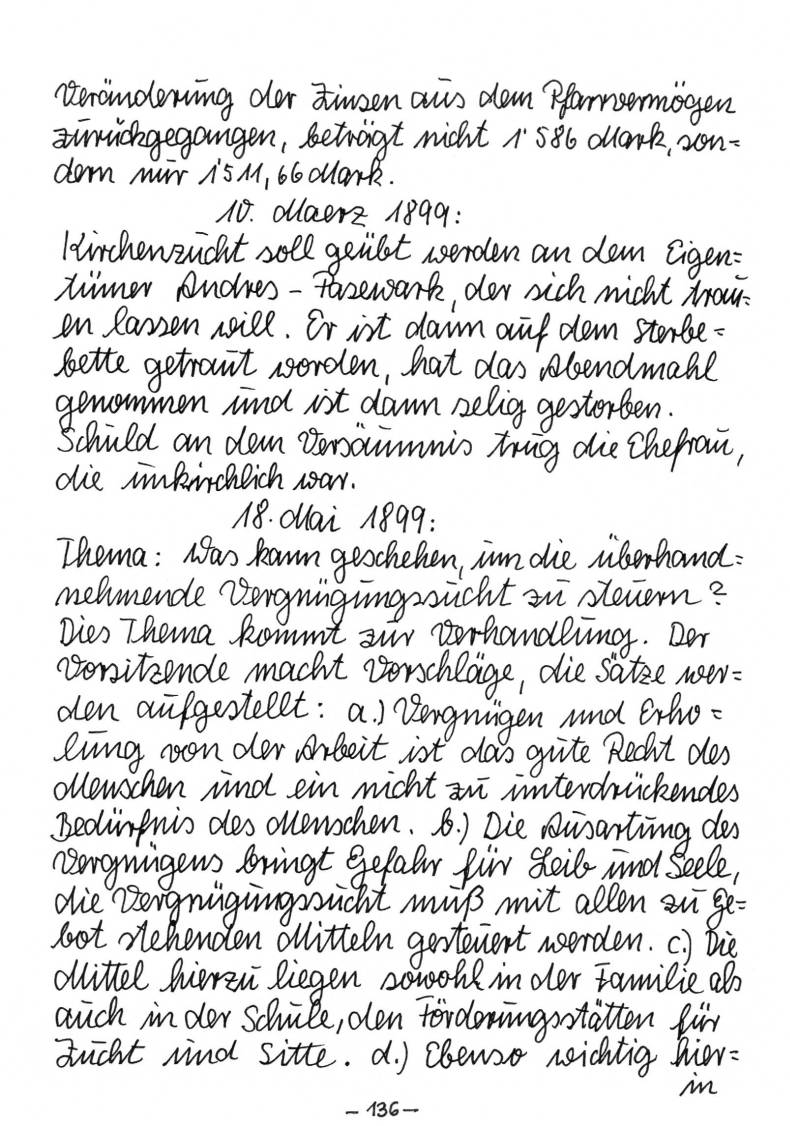 Veränderung der Zinsen aus dem Pfarrvermögen
zurückgegangen, beträgt nicht 1'586 Mark, son=
dern nur 1'511,66 Mark.
10. Maerz 1899:
Kirchenzucht soll geübt werden an dem Eigen=
tümer Andres - Pasewark, der sich nicht trau=
en lassen will. Er ist dann auf dem Sterbe=
bette getraut worden, hat das Abendmahl
genommen und ist dann selig gestorben.
Schuld an dem Versäumnis trug die Ehefrau,
die unkirchlich war.
18. Mai 1899:
Thema: Was kann geschehen, um die überhand=
nehmende Vergnügungssucht zu steuern?
Dies Thema kommt zur Verhandlung. Der
Vorsitzende macht Vorschläge, die Sätze wer=
den aufgestellt: a.) Vergnügen und Erho=
lung von der Arbeit ist das gute Recht des
Menschen und ein nicht zu unterdrückendes
Bedürfnis des Menschen. b.) Die Ausartung des
Vergnügens bringt Gefahr für Leib und Seele,
die Vergnügungssucht muß mit allen zu Ge=
bot stehenden Mitteln gesteuert werden. c.) Die
Mittel hierzu liegen sowohl in der Familie als
auch in der Schule, den Förderungsstätten für
Zucht und Sitte. d.) Ebenso wichtig hier=
in
- 136 -